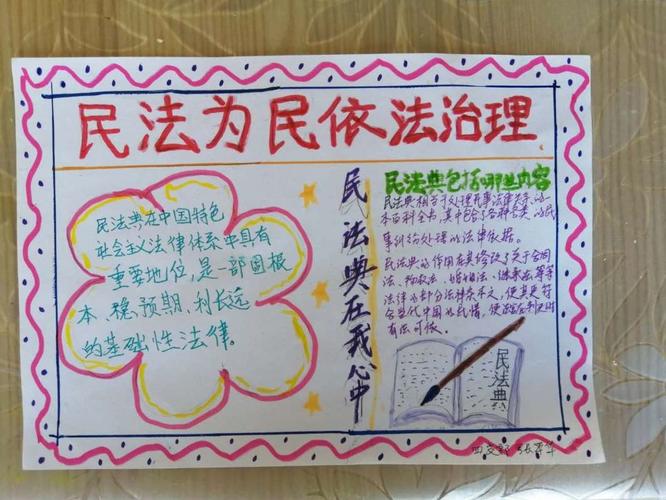 民法为民依法治理
民法典在中国特色
社会主义法律体系中具有
重要地位，是一部固根
本、稳预期、利长远
的基础性法律。
民法典在我心中
民法典包括哪些内容
民法典相当于处理民事法律关系的一
本百科全书，其中包含了各种各类的民
事纠纷处理的法律依据。
民法典的作用在其修改了关于合同
法、物权法、婚姻法、继承法等等
法律的部分法律条文，使其更符
合当代中国的民情，使法官在判决时
有法可依。
民法典